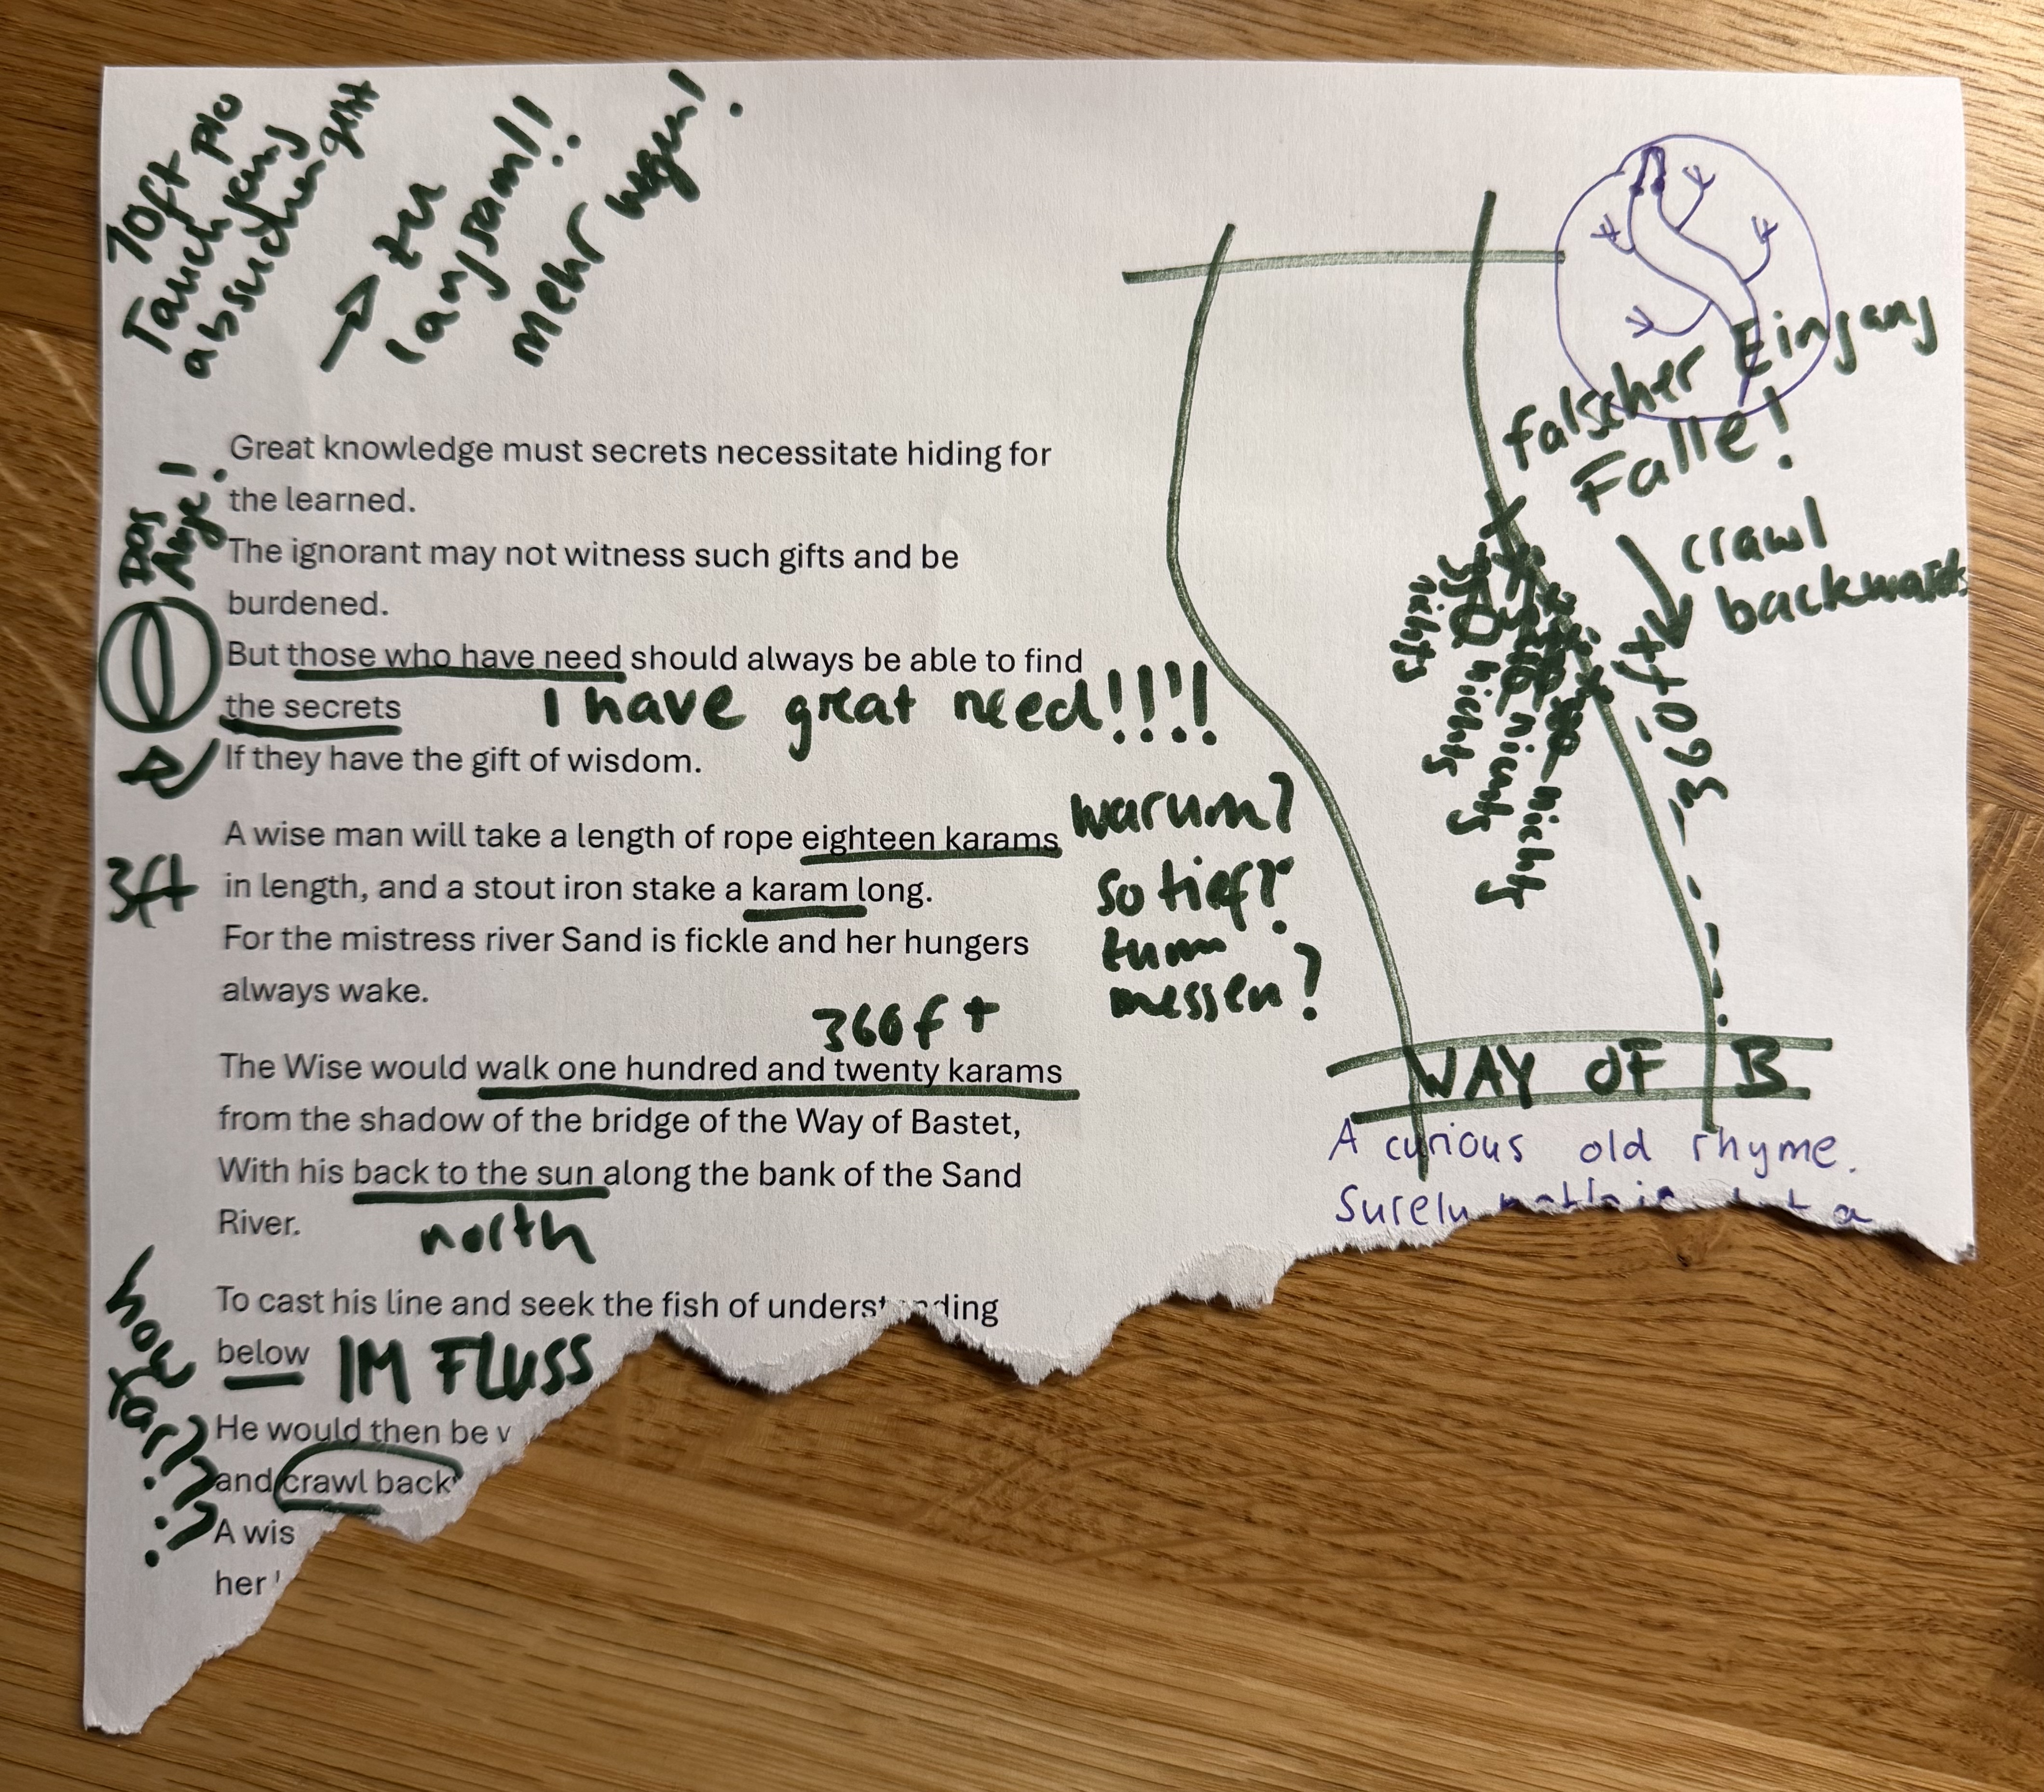 10ft pro
Tauchgang
absuchen geht
→ zu
langsam!!
mehr wegen!
Great knowledge must secrets necessitate hiding for
the learned.
The ignorant may not witness such gifts and be
burdened.
But those who have need should always be able to find
the secrets
I have great need!!!!
If they have the gift of wisdom.
Das
Auge!
A wise man will take a length of rope eighteen karams
in length, and a stout iron stake a karam long.
3ft
For the mistress river Sand is fickle and her hungers
always wake.
warum?
so tief?
zum
messen?
360ft
The Wise would walk one hundred and twenty karams
from the shadow of the bridge of the Way of Bastet,
With his back to the sun along the bank of the Sand
River.
north
To cast his line and seek the fish of understanding
below
IM FLUSS
He would then be
and crawl back
A wis
her
how far?!?!
falscher Eingang
Falle!
crawl
backwards
360ft
nichts
nichts
nichts
nichts
WAY OF B
A curious old rhyme.
Surely
a